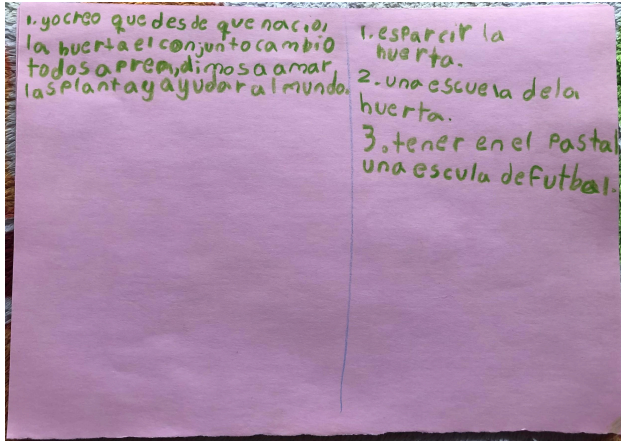 1. yo creo que desde que nacio,
la huerta el conjunto cambio
todos aprendimos a amar
las planta y ayudar al mundo.
1. esparcir la
huerta.
2. una escuela de la
huerta.
3. tener en el Pastal
una escula de futbol.